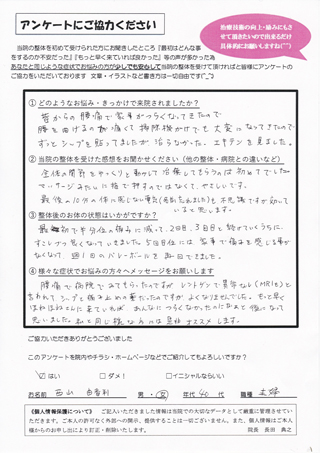 アンケートにご協力ください
治療技術の向上・励みにもさ
せて頂きたいので出来るだけ
具体的にお願いします(^^)
当院の整体を初めて受けられた方にお聞きしたところ『最初はどんな事
をするのか不安だった』『もっと早く来ていれば良かった』等の声が多かった為
あなたと同じような症状でお悩みの方が少しでも安心して当院の整体を受けて頂ければと皆様にアンケートの
ご協力をいただいております 文章・イラストなど書き方は一切自由です(^_^)
①どのようなお悩み・きっかけで来院されましたか?
昔からの腰痛で家事がつらくなってきたので
腰を曲げるのが痛くて掃除機かけても大変になってきたので
ずっとシップを貼ってましたが治らなかった。エキテンを見ました。
②当院の整体を受けた感想をお聞かせください(他の整体・病院との違いなど)
全体の関節をゆっくりと動かして治療してもらうのは初めてでした
マッサージみたいに指で押すのではなくて、やさしいです。
③整体後のお体の状態はいかがですか?
最初で半分位の痛みに減って、2回目、3回目と続けていくうちに、
すこしずつ良くなっていました。5回目位には家事で痛みを感じる事が
なくなり、週1回のバレーボールを
④様々な症状でお悩みの方々へメッセージをお願いします
腰痛で病院でみてもらっていたのですが、レントゲンで異常なし(MRIも)と
言われてシップと痛み止めの薬だったのですが、よくなりませんでした。もっと早く
ほねほねに来ていれば、あんなにつらくなかったのになぁと後になって
思いました。私と同じ様な方には是非オススメします。
ご協力いただきありがとうございました
このアンケートを院内やチラシ・ホームページなどでご紹介してもよろしいですか?
☑はい □ダメ! □イニシャルならいい
お名前 西山 由香利 男・女 年代 40代 職種 主婦
《個人情報保護について》 ご記入いただきました情報は当院での大切なデータとして厳重に管理させてい
ただきます。ご本人の許可なく外部への開示、提供することは一切ございません。また、個人情報はご本人
様からのお申し出により訂正・削除いたします。 院長 長田 典之